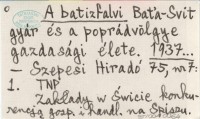 A batizfalvi Bata-Svit
gyár és a poprádvölgye
gazdasági élete. 1937...
— Szepesi Hiradó 75, nr 7:
1. TNP
Zakłady w Świcie konku-
rencją gosp. i handl. na Spiszu.